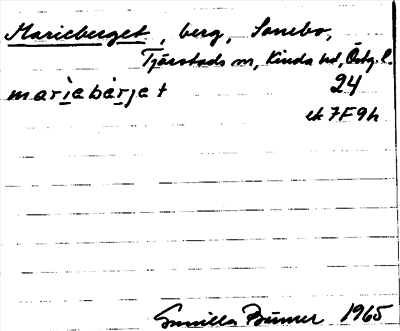 Marieberget, berg, Sonebo,
Tjärstads sn, Kinda hd, Östg. l.
mariabärjet 24
ek 7F9h
Gunilla 1965